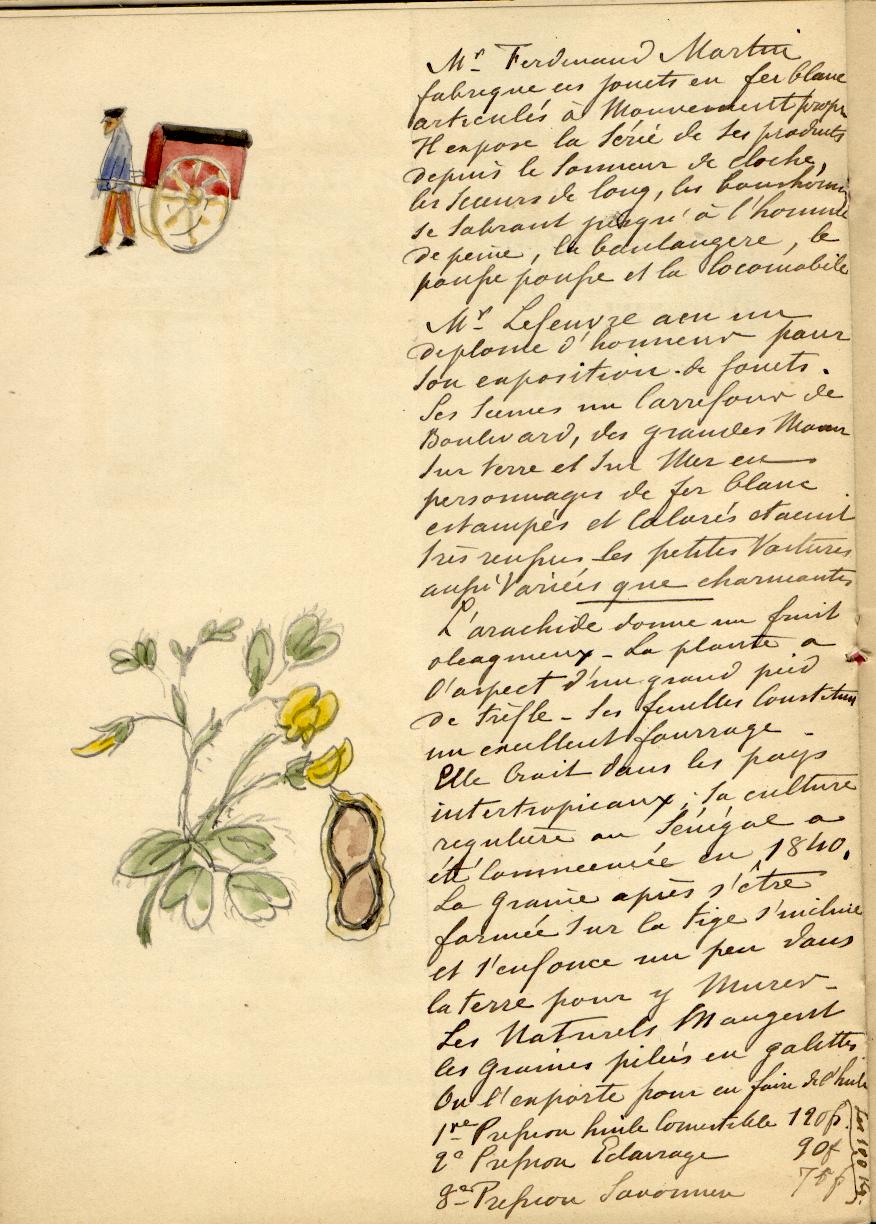 Mr Ferdinand Martin
fabrique ces jouets en fer blanc
articulés à Mouvement propre
Il expose la Série de ses produits
depuis le Sonneur de cloche,
les Scieurs de long, les bonshommes
se Sabrant jusqu'à l'homme
de peine, la boulangere, le
poufse poufse et la locomobile
Mr Lefeuvre a eu un
diplome d'honneur pour
son exposition de Jouets.
Ses Scènes un Carrefour de
Boulevard, des grandes Manœuv
Sur terre et Sur Mer en
personnages de fer blanc
estampés et Colorés étaient
très les petites Voitures
aufsi Variées que charmantes
L'arachide donne un fruit
oleagineux - La plante a
l'aspect d'un grand pied
de Trêfle - Ses feuilles Constituen
un excellent fourrage -
Elle Croit dans les pays
intertropicaux ; Sa culture
reguliere au Sénégal a
été Commencée en 1840.
La Graine après s'être
formée Sur la tige s'incline
et s'enfonce un peu dans
la terre pour y Murir -
Les Naturels Mangent
les Graines pilées en galettes.
On l'exporte pour en faire de l'huile
1re Prefsion huile Comestible 120f.
2e Prefsion Eclairage 90f
3e Prefsion Savonnerie 75f
Les 100 Kg.